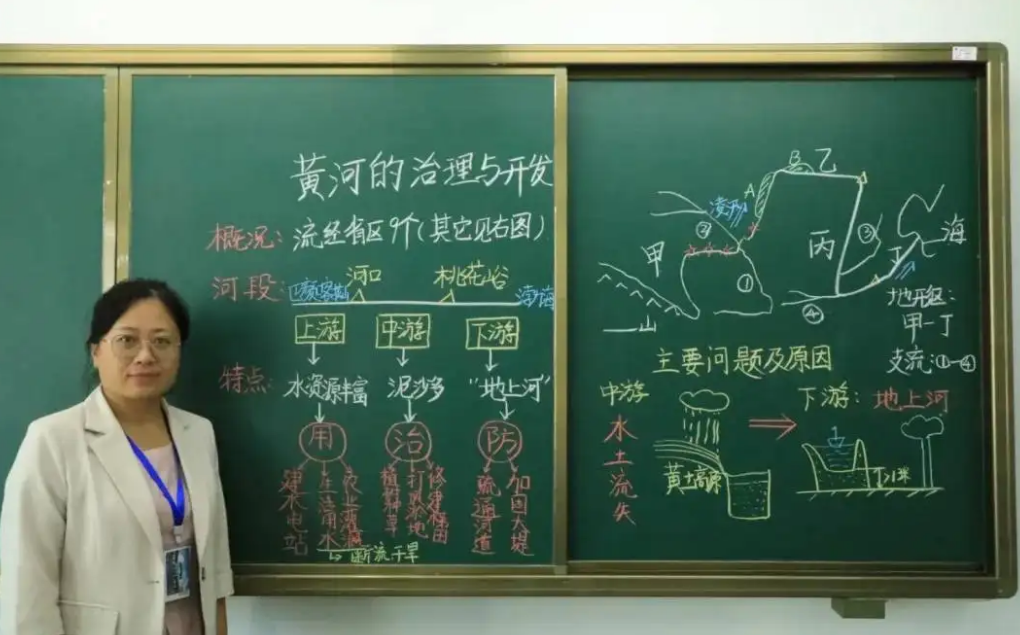 黄河的治理与开发
概况：流经省区9个（其它见右图）
河段：巴颜喀拉山 河口 桃花峪 渤海
上游 中游 下游
特点：水资源丰富 泥沙多 “地上河”
用 治 防
建水电站 生活用水 农业灌溉 植树种草 打坝淤地 修建梯田 疏通河道 加固大堤
断流干旱
乙
A
凌汛
③
甲
①
丙
③
丁
海
④
山
地形区：
甲—丁
支流：①—④
主要问题及原因
中游
水土流失
黄土高原
下游：地上河